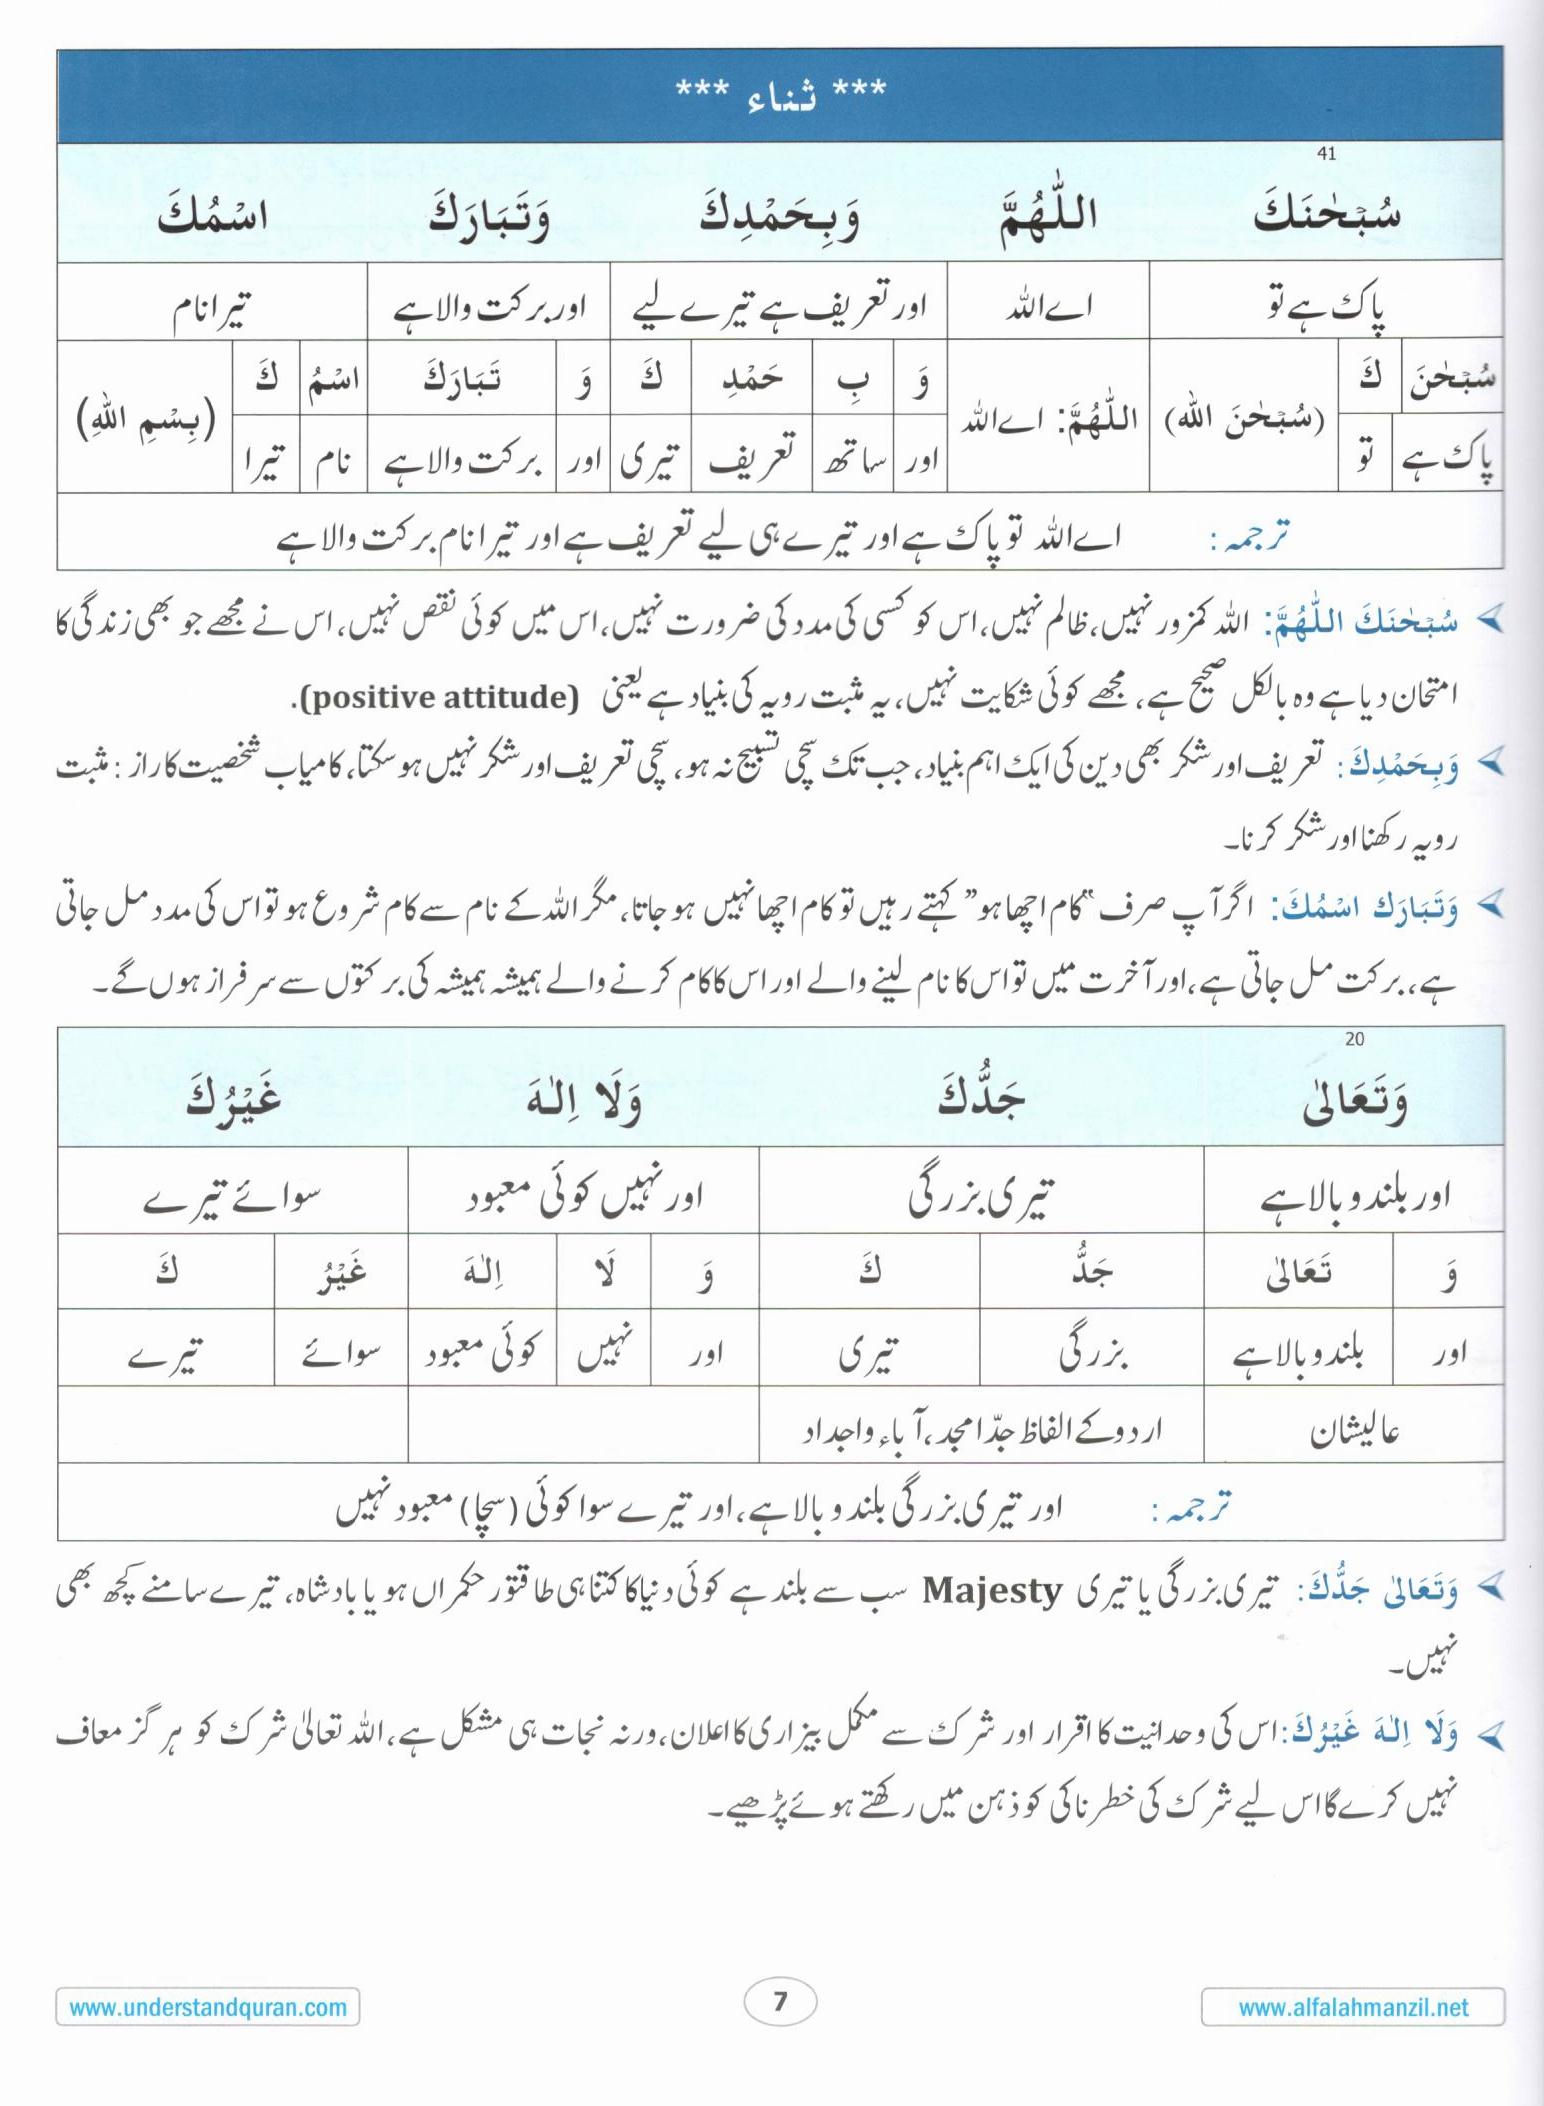 *** ثناء ***
41
سُبْحٰنَكَ اللّٰهُمَّ وَبِحَمْدِكَ وَتَبَارَكَ اسْمُكَ
پاک ہے تو اے اللہ اور تعریف ہے تیرے لیے اور برکت والا ہے تیرا نام
سُبْحٰنَ كَ (سُبْحٰنَ الله) اللّٰهُمَّ: اے اللہ وَ بِ حَمْدِ كَ وَ تَبَارَكَ اسْمُ كَ (بِسْمِ اللهِ)
پاک ہے تو اور ساتھ تعریف تیری اور برکت والا ہے نام تیرا
ترجمہ: اے اللہ تو پاک ہے اور تیرے ہی لیے تعریف ہے اور تیرا نام برکت والا ہے
سُبْحٰنَكَ اللّٰهُمَّ: اللہ کمزور نہیں، ظالم نہیں، اس کو کسی کی مدد کی ضرورت نہیں، اس میں کوئی نقص نہیں، اس نے مجھے جو بھی زندگی کا
امتحان دیا ہے وہ بالکل صحیح ہے، مجھے کوئی شکایت نہیں، یہ مثبت رویہ کی بنیاد ہے یعنی (positive attitude).
وَبِحَمْدِكَ: تعریف اور شکر بھی دین کی ایک اہم بنیاد، جب تک سچی تسبیح نہ ہو، سچی تعریف اور شکر نہیں ہو سکتا، کامیاب شخصیت کا راز: مثبت
رویہ رکھنا اور شکر کرنا۔
وَتَبَارَكَ اسْمُكَ: اگر آپ صرف ‟کام اچھا ہو” کہتے رہیں تو کام اچھا نہیں ہو جاتا، مگر اللہ کے نام سے کام شروع ہو تو اس کی مدد مل جاتی
ہے، برکت مل جاتی ہے، اور آخرت میں تو اس کا نام لینے والے اور اس کا کام کرنے والے ہمیشہ ہمیشہ کی برکتوں سے سرفراز ہوں گے۔
20
وَتَعَالىٰ جَدُّكَ وَلَا اِلٰهَ غَيْرُكَ
اور بلند و بالا ہے تیری بزرگی اور نہیں کوئی معبود سوائے تیرے
وَ تَعَالىٰ جَدُّ كَ وَ لَا اِلٰهَ غَيْرُ كَ
اور بلند و بالا ہے بزرگی تیری اور نہیں کوئی معبود سوائے تیرے
عالیشان اردو کے الفاظ جدّ امجد، آباء واجداد
ترجمہ: اور تیری بزرگی بلند و بالا ہے، اور تیرے سوا کوئی (سچا) معبود نہیں
وَتَعَالىٰ جَدُّكَ: تیری بزرگی یا تیری Majesty سب سے بلند ہے کوئی دنیا کا کتنا ہی طاقتور حکمراں ہو یا بادشاہ، تیرے سامنے کچھ بھی
نہیں۔
وَلَا اِلٰهَ غَيْرُكَ: اس کی وحدانیت کا اقرار اور شرک سے مکمل بیزاری کا اعلان، ورنہ نجات ہی مشکل ہے، اللہ تعالیٰ شرک کو ہرگز معاف
نہیں کرے گا اس لیے شرک کی خطرناکی کو ذہن میں رکھتے ہوئے پڑھیے۔
www.alfalahmanzil.net 7 www.understandquran.com